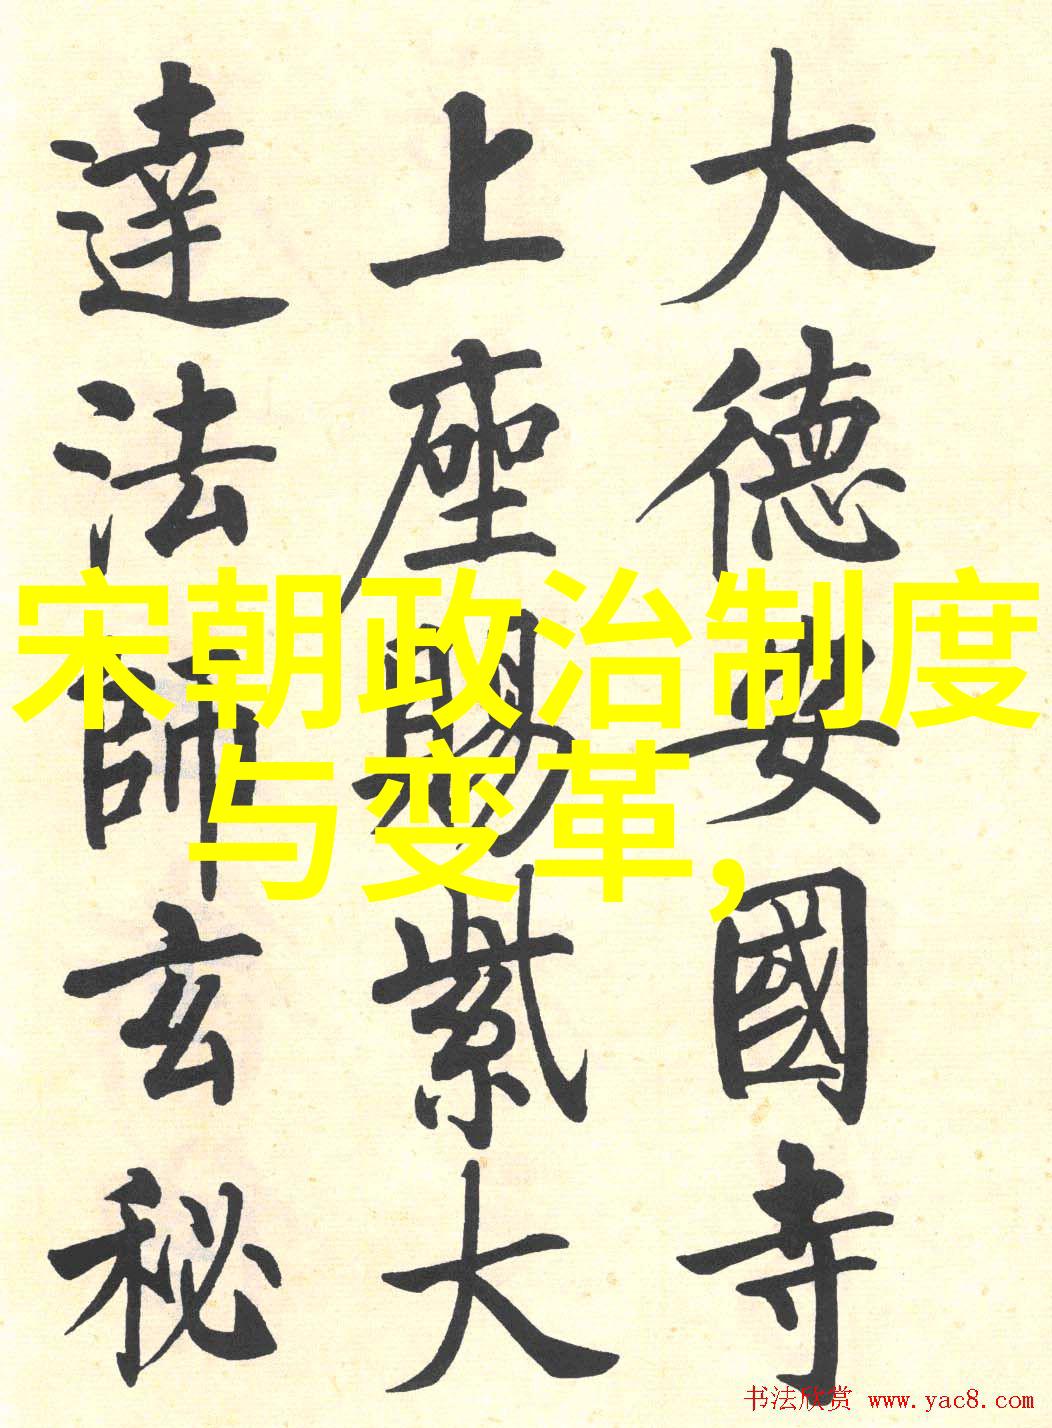 大德安國寺
上座賜紫大
達法師玄秘
宋朝政治制度
与变革,
书法欣赏 www.yac8.com